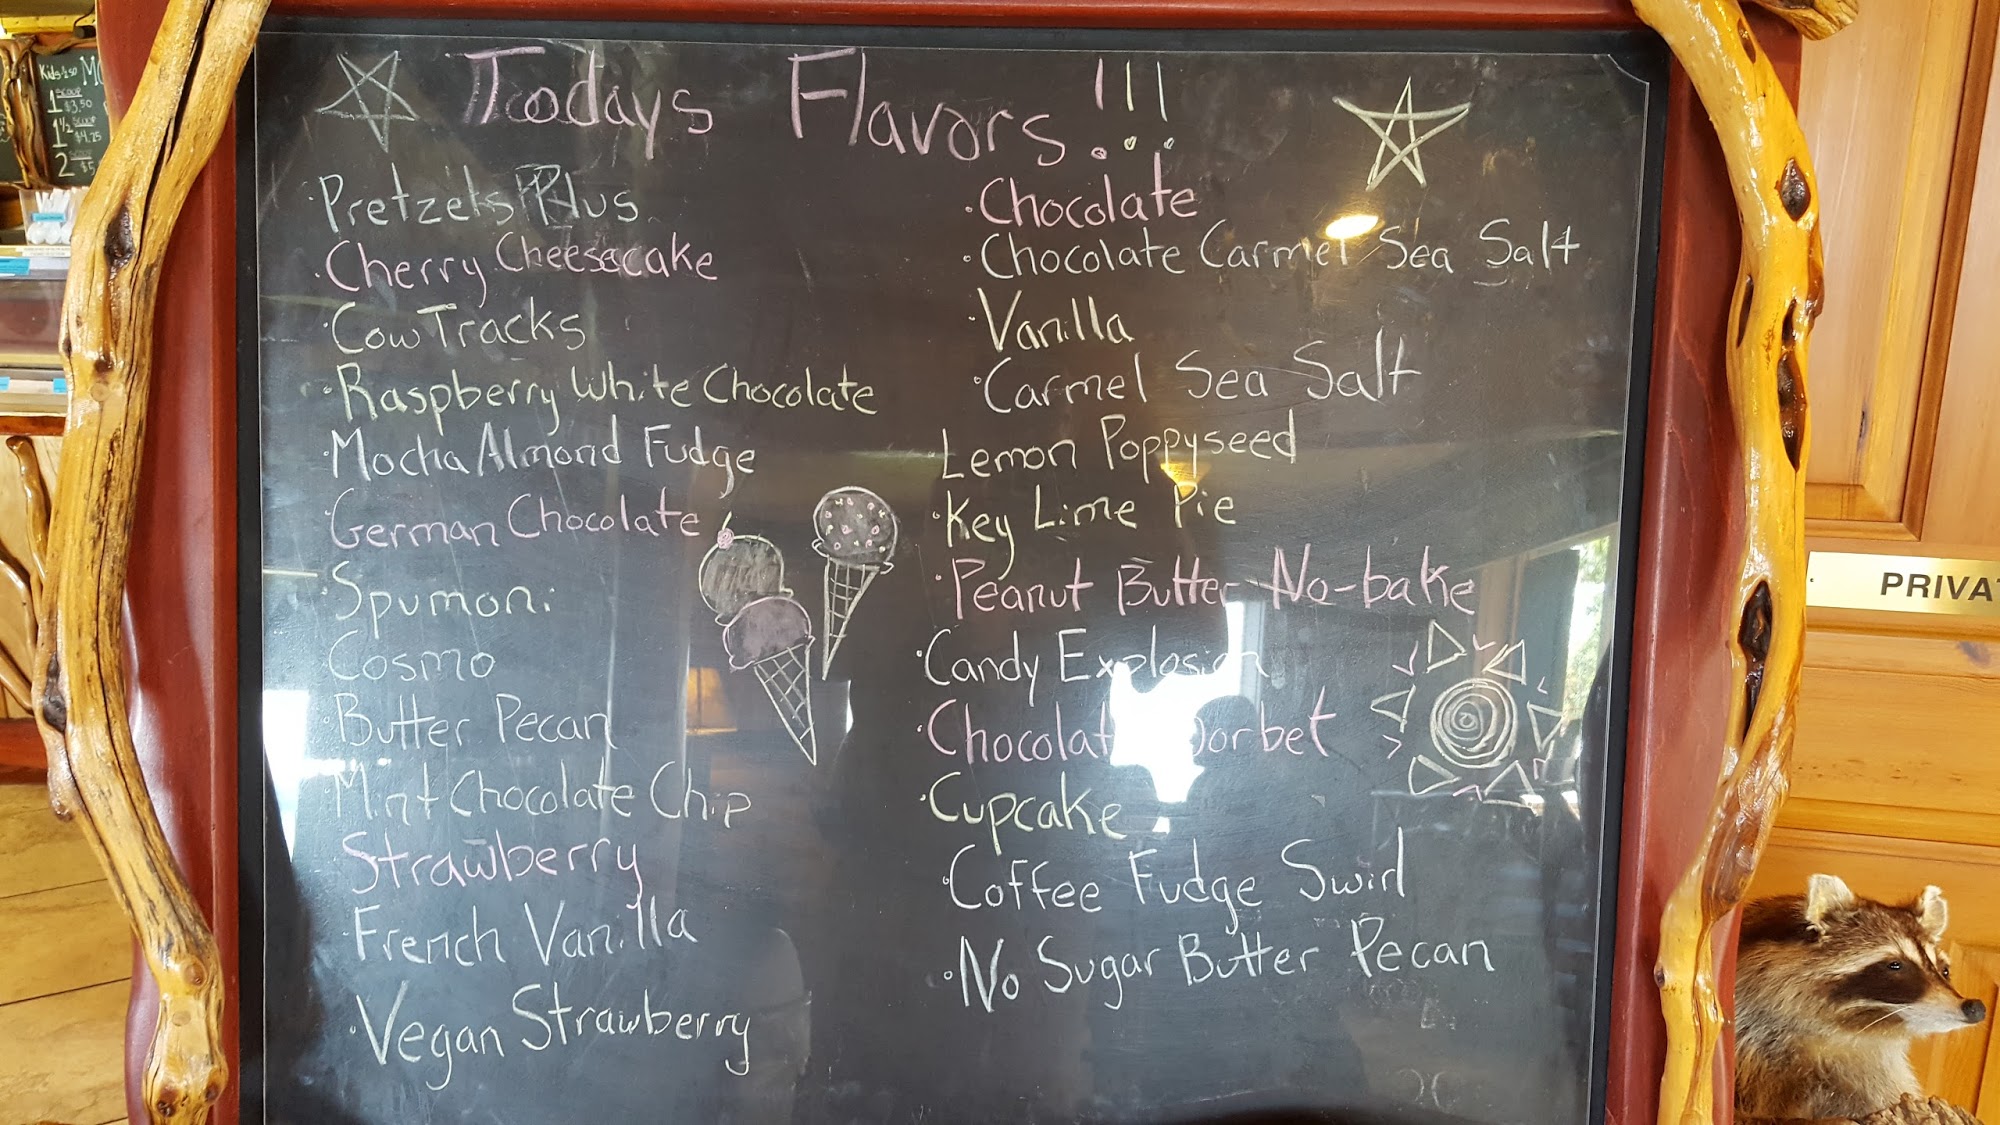 Todays Flavors!!!
Pretzels Plus
Cherry Cheesecake
Cow Tracks
Raspberry White Chocolate
Mocha Almond Fudge
German Chocolate
Spumoni
Cosmo
Butter Pecan
Mint Chocolate Chip
Strawberry
French Vanilla
Vegan Strawberry
Chocolate
Chocolate Carmel Sea Salt
Vanilla
Carmel Sea Salt
Lemon Poppyseed
Key Lime Pie
Peanut Butter No-bake
Candy Explosion
Chocolat Sorbet
Cupcake
Coffee Fudge Swirl
No Sugar Butter Pecan
Kids 2.50
1 SCOOP $3.50
1 1/2 SCOOP $4.25
2 SCOOP $5
PRIVAT